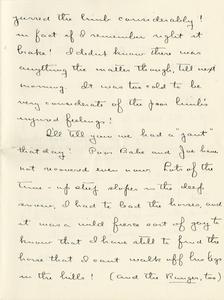 jurred the limb considerably!
in fact if I remember right it
broke! I didn't know there was
anything the matter though, till next
morning. It was too cold to be
very considerate of the poor limb's
injured feelings!
I'll tell you we had a "jaunt"
that day! Poor Babe and Joe have
not recovered even now. Lots of the
time - up steep slopes in the deep
snow, I had to lead the horses, and
it was a wild fierce sort of joy to
know that I have still to find the
horse that I can't walk off his legs
in the hills! (And the Ranger, too)